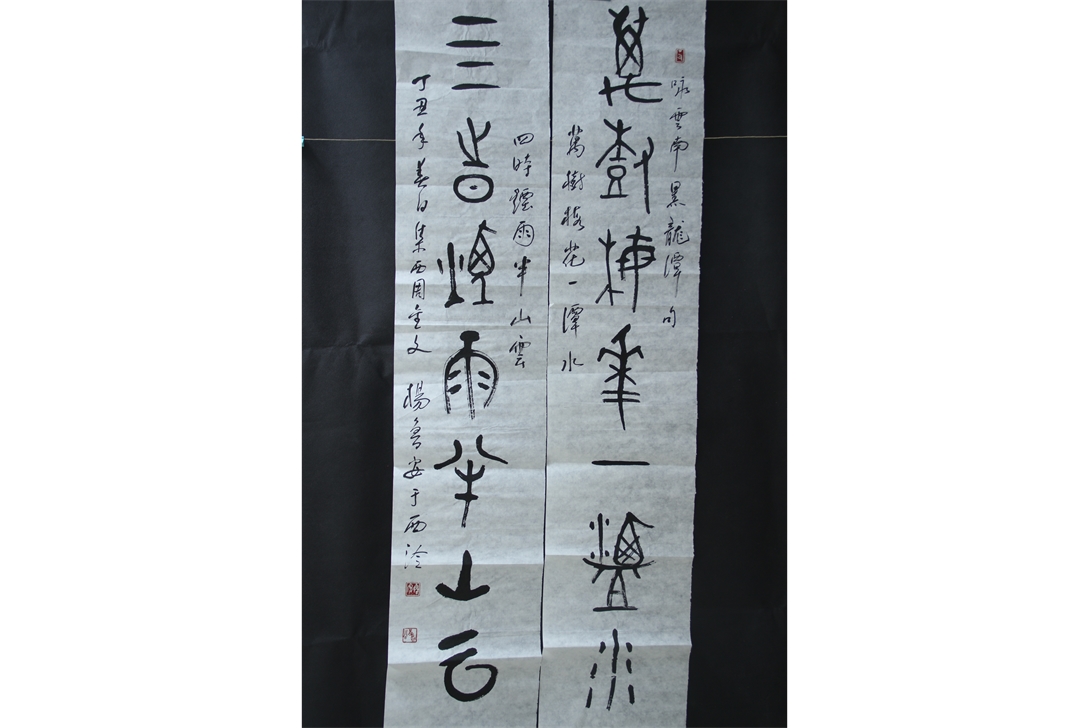 咏雲南黑龍潭句
萬樹梅華一潭水
萬樹梅花一潭水
四時煙雨半山雲
亖旹煙雨半山云
丁丑年春日集西周金文 楊魯安于西泠